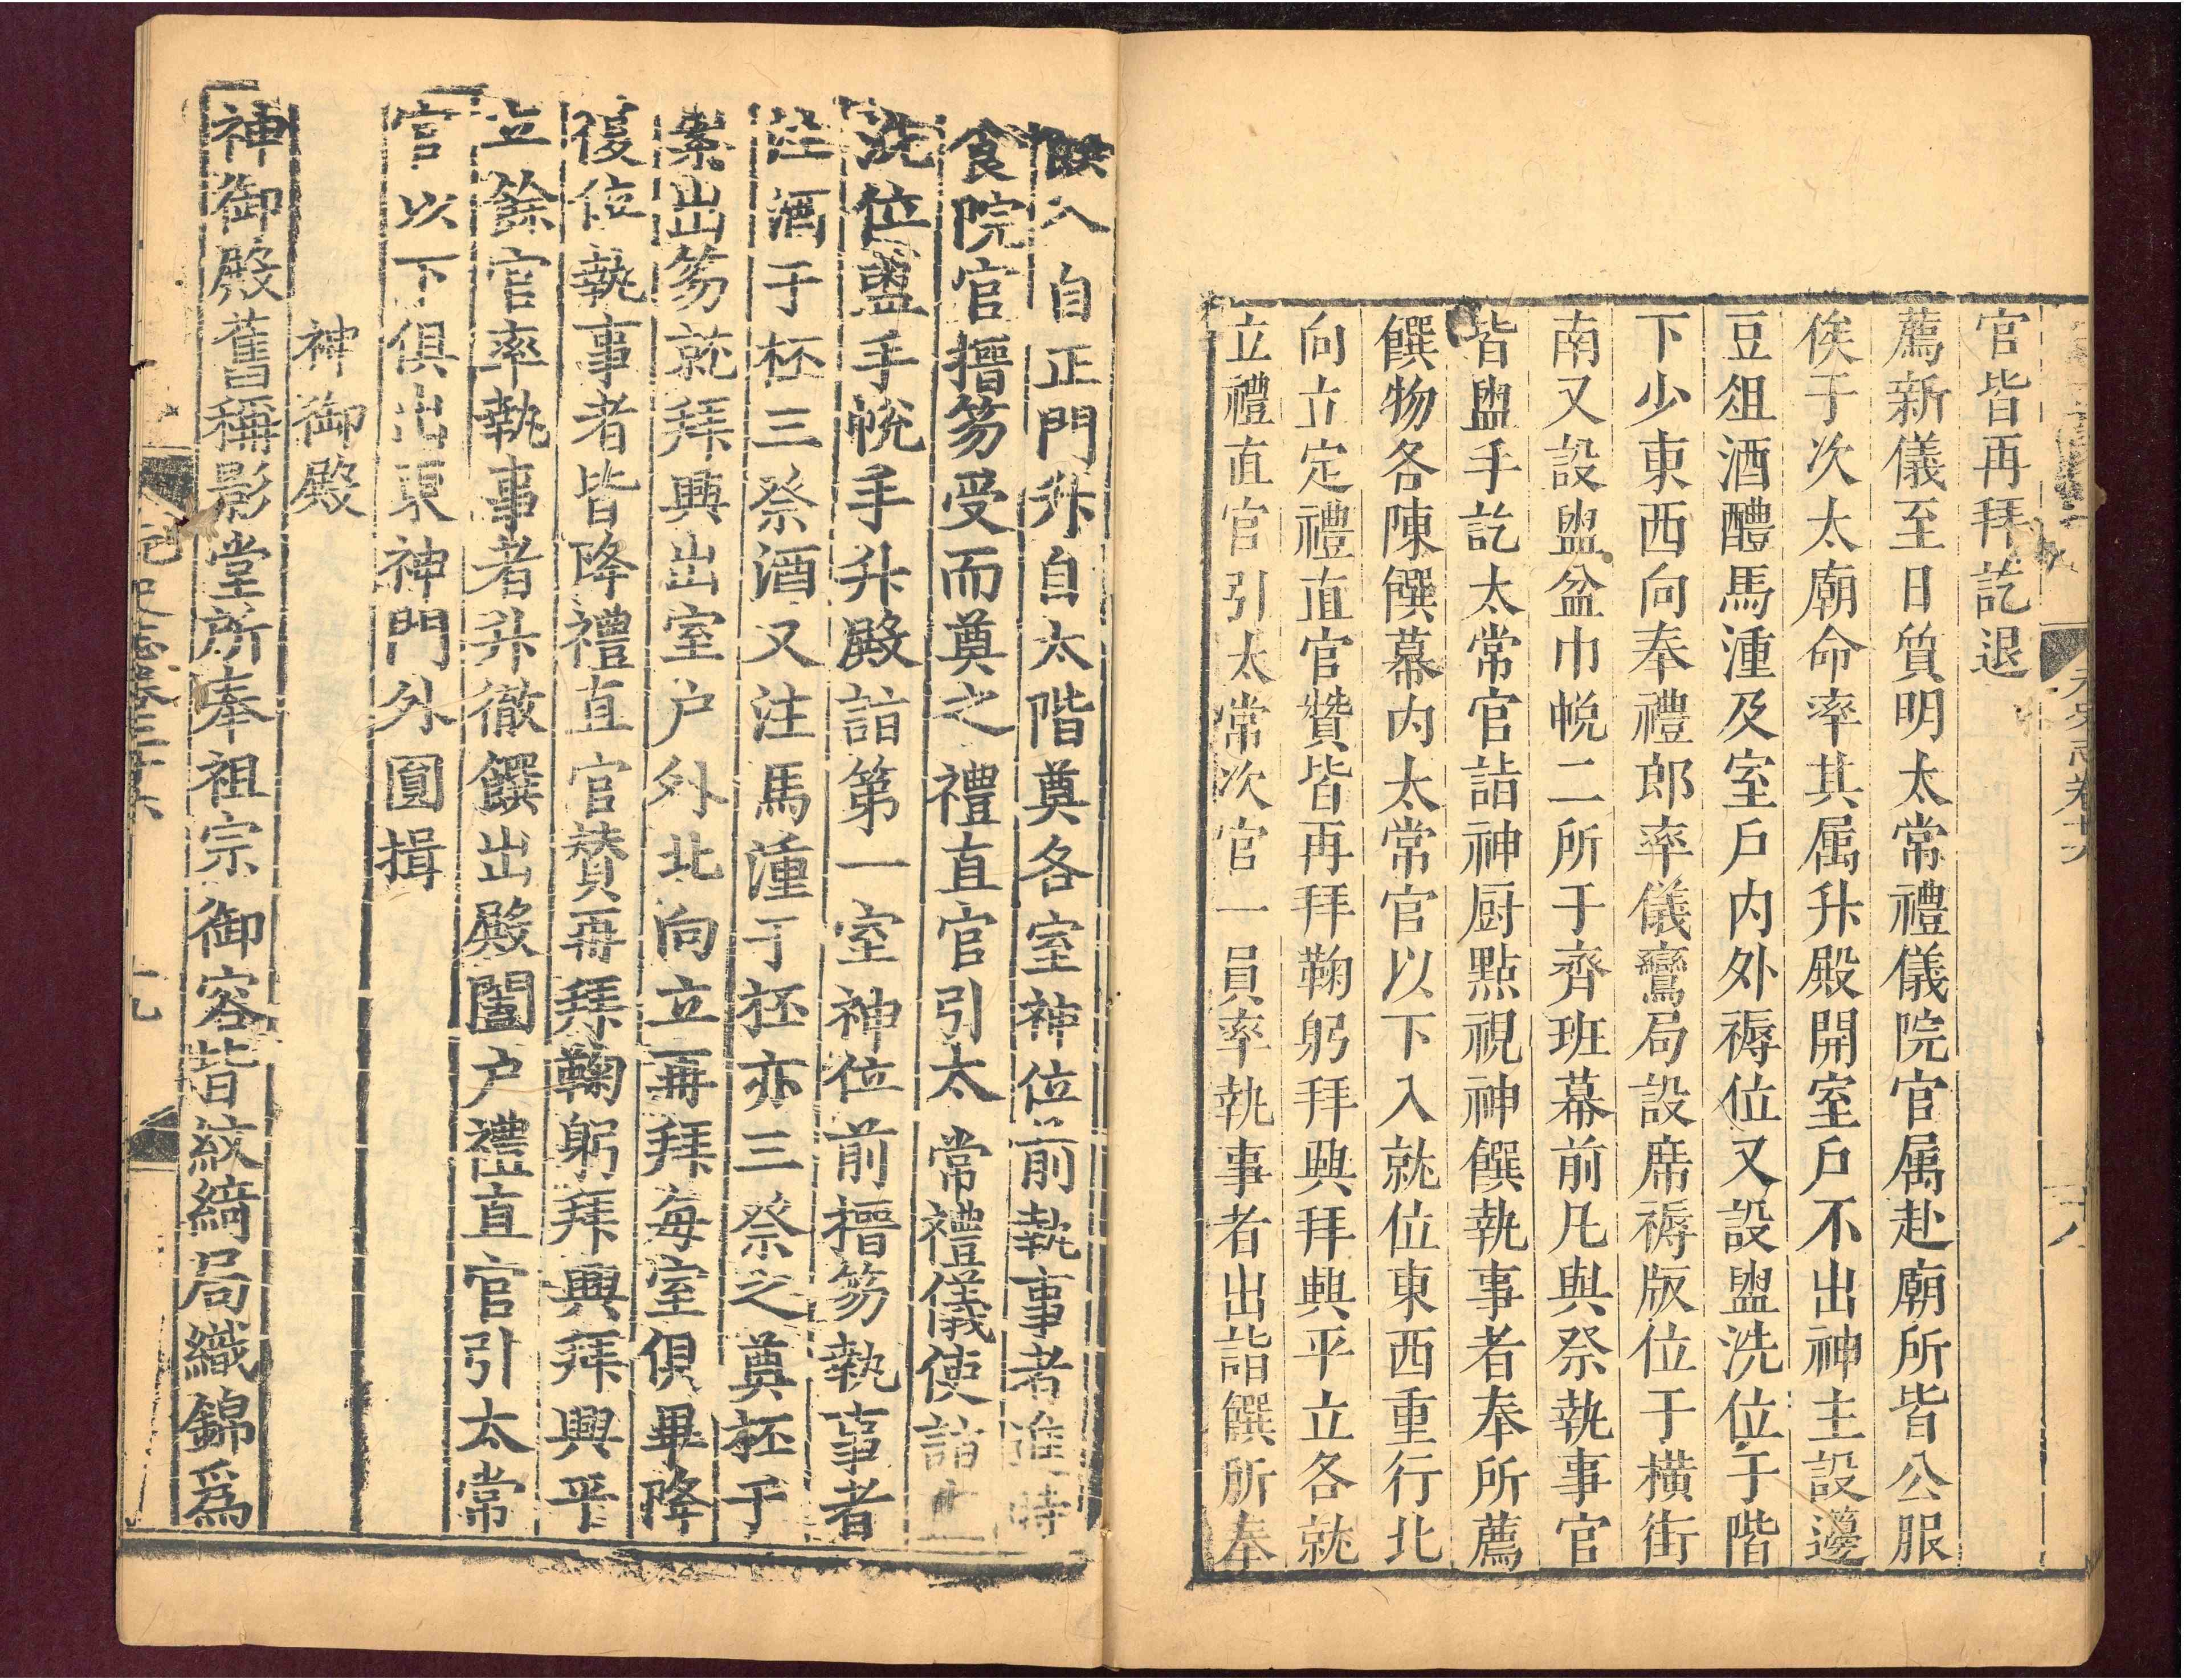 元史志卷二十六 十八
官皆再拜訖退
薦新儀至日質明太常禮儀院官属赴廟所皆公服
俟于次太廟命率其属升殿開室戶不出神主設籩
豆俎酒醴馬湩及室戶內外褥位又設盥洗位于階
下少東西向奉禮郎率儀鸞局設席褥版位于橫街
南又設盥盆巾帨二所于齊班幕前凡與祭執事官
皆盥手訖太常官詣神厨點視神饌執事者奉所薦
饌物各陳饌幕內太常官以下入就位東西重行北
向立定禮直官贊皆再拜鞠躬拜興拜興平立各就
立禮直官引太常次官一員率執事者出詣饌所奉
饌入自正門升自太階奠各室神位前執事者進時
食院官搢笏受而奠之禮直官引太常禮儀使詣
洗位盥手帨手升殿詣第一室神位前搢笏執事者
注酒于杯三祭酒又注馬湩于抔亦三祭之奠抔于
案出笏就拜興出室户外北向立再拜每室俱畢降
復位執事者皆降禮直官贊再拜鞠躬拜興拜興平
立餘官率執事者升徹饌出殿闔户禮直官引太常
官以下俱出東神門外圓揖
神御殿
神御殿舊稱影堂所奉祖宗御容皆紋綺局織錦爲
元史志卷二十六 十九